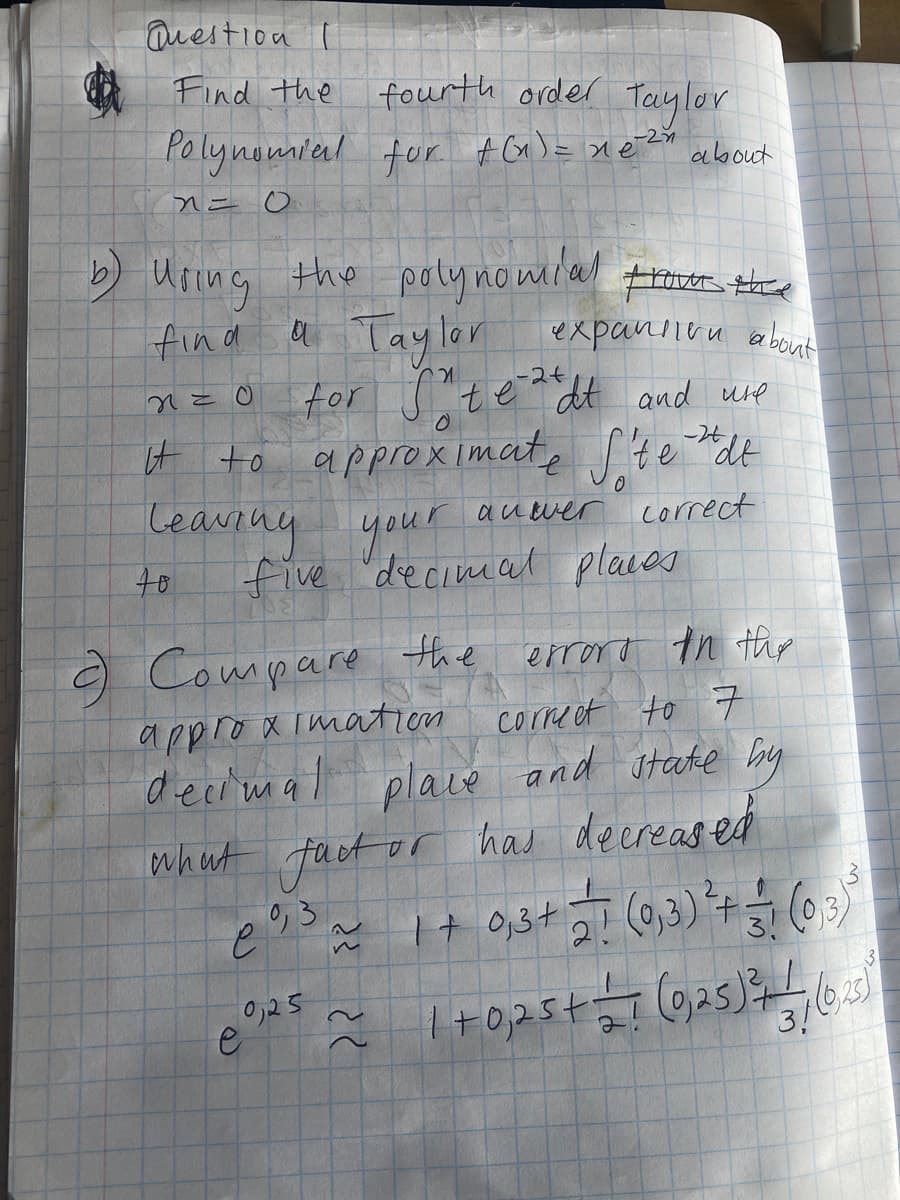 Question 1
Find the fourth order Taylor
Polynomial for f(x) = xe^-2x about
x = 0
b) Using the polynomial from the
find a Taylor expansion about
x = 0 for ∫₀ˣ te^-2t dt and use
it to approximate ∫₀¹ te^-2t dt
leaving your answer correct
to five decimal places
c) Compare the errors in the
approximation correct to 7
decimal place and state by
what factor has decreased
e^0,3 ≈ 1 + 0,3 + 1/2! (0,3)² + 1/3! (0,3)³
e^0,25 ≈ 1 + 0,25 + 1/2! (0,25)² + 1/3! (0,25)³